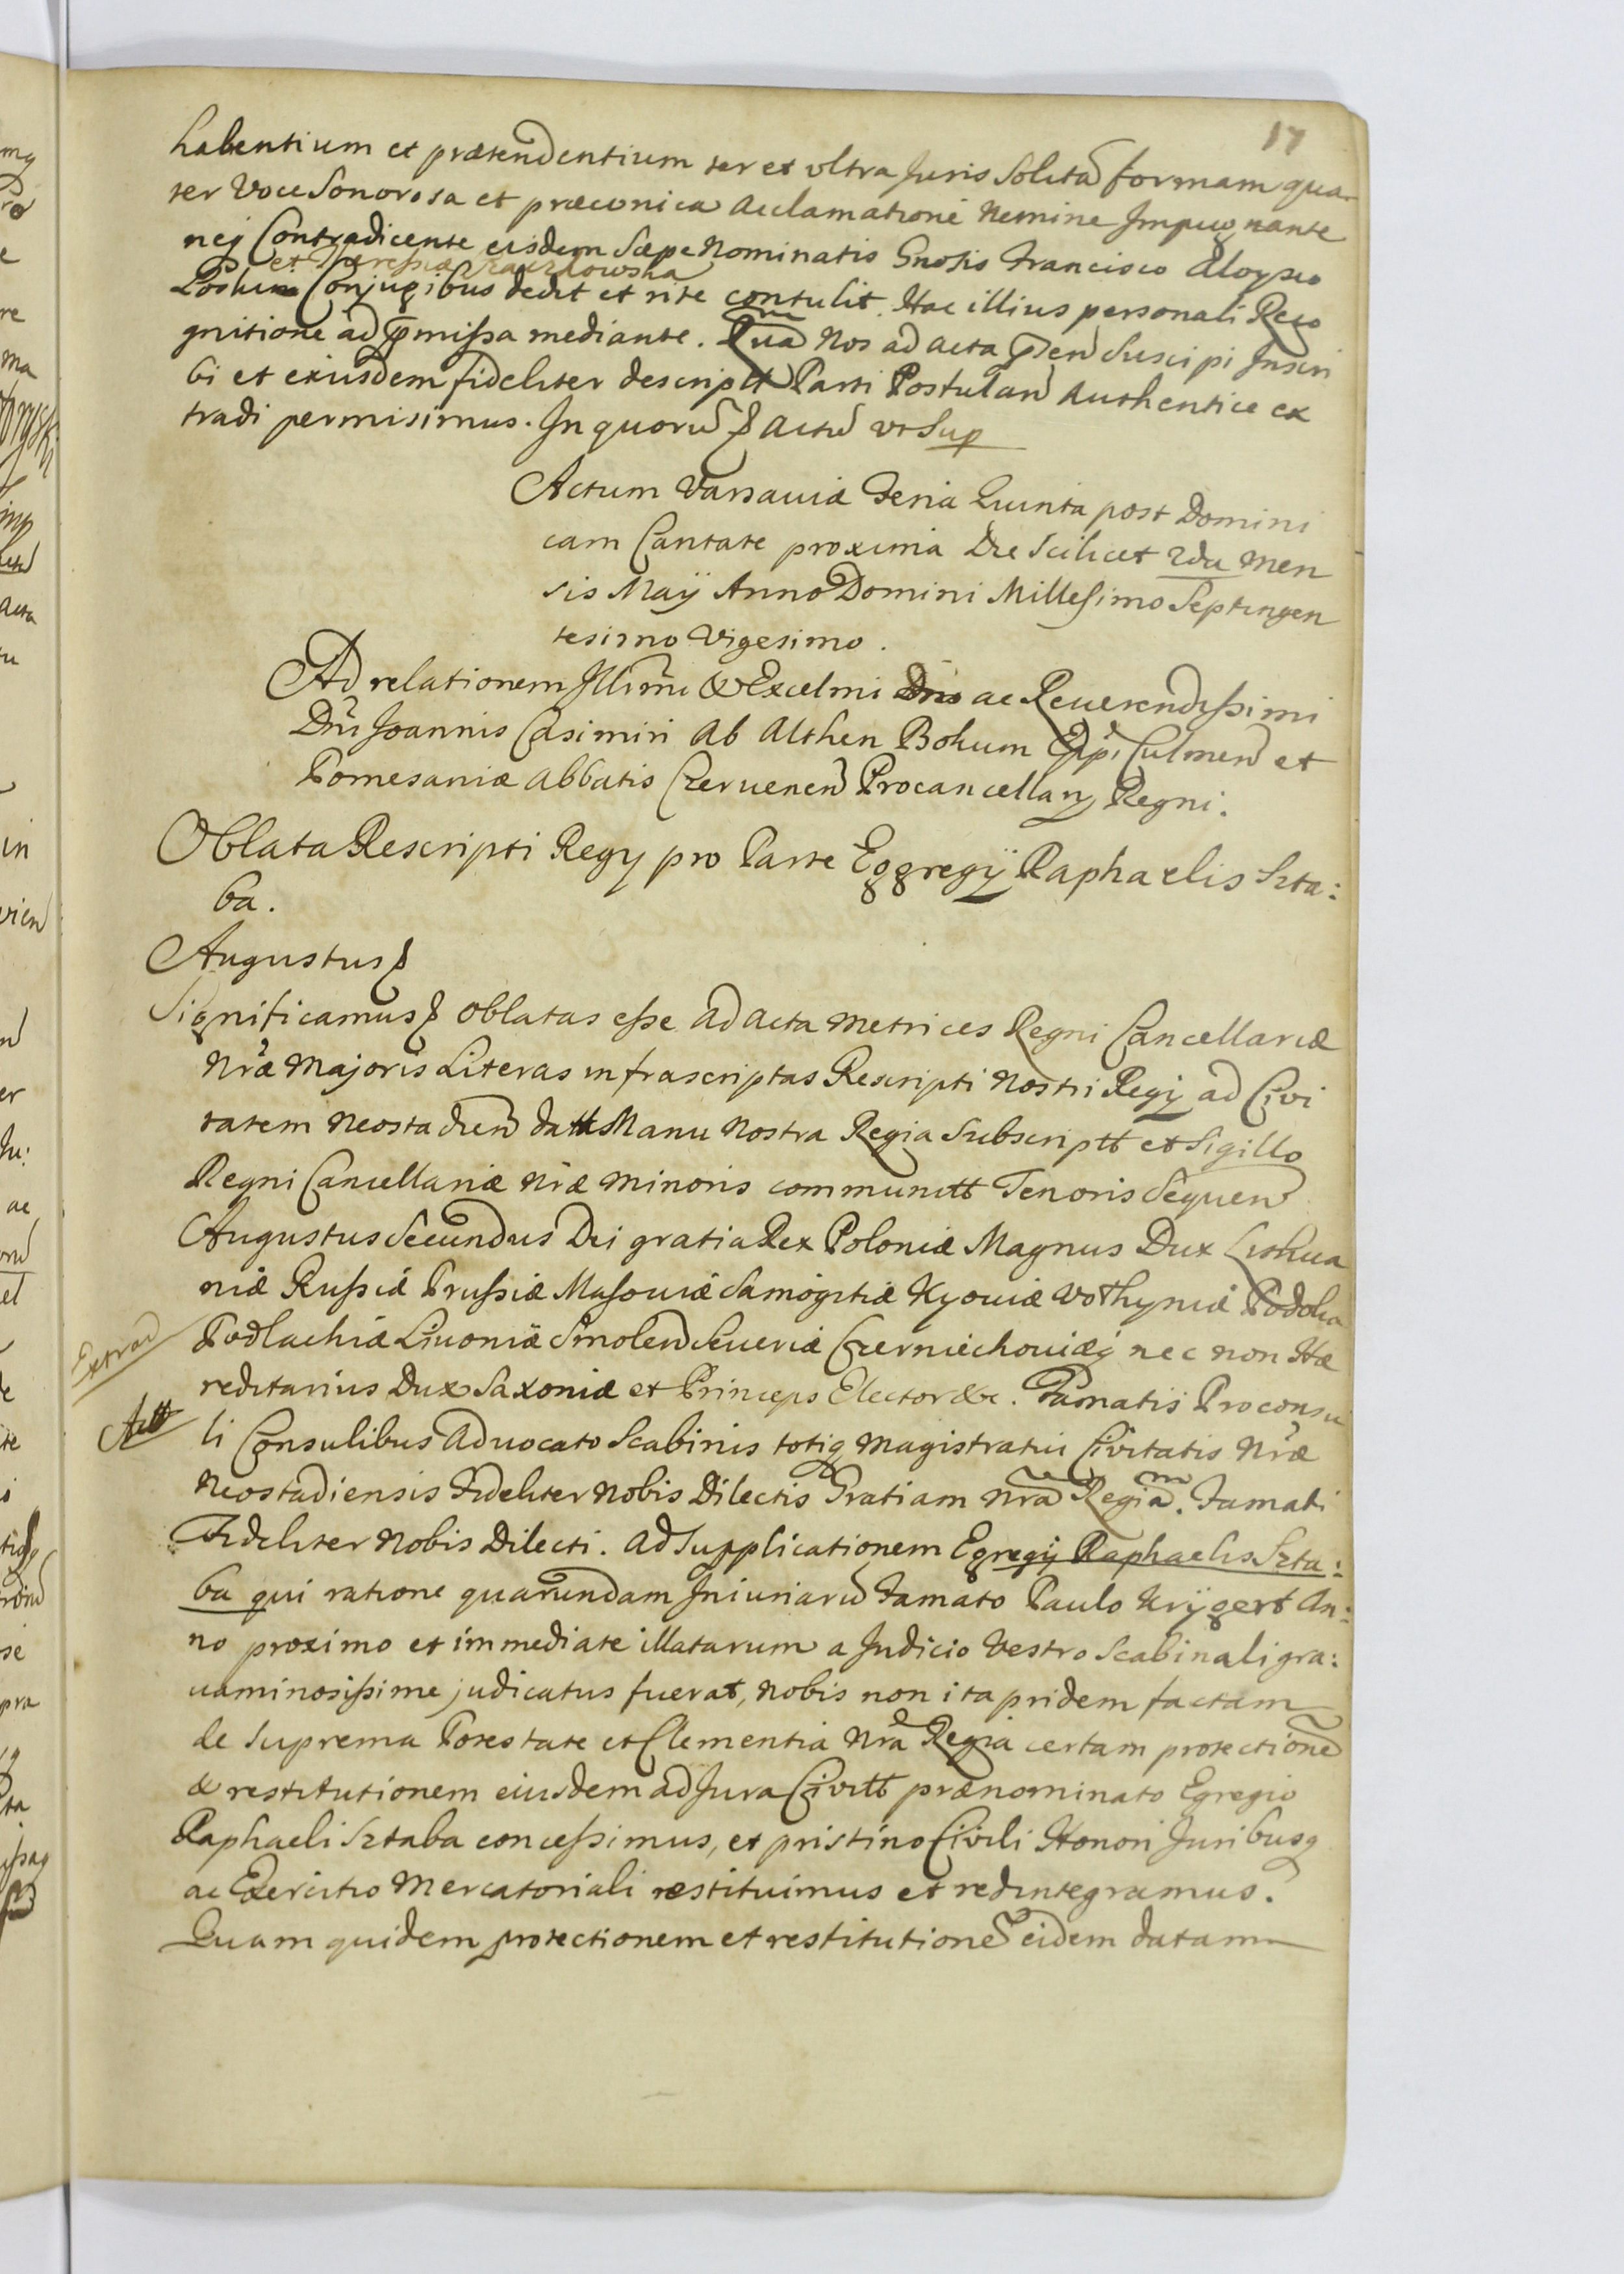 17
habentium et prætendentium ter et vltra Juris Solitã formam qua
ter Voce Sonorosa et præconica Acclamatione Nemine Impugnante
neq Contradicente eisdem Sæpe Nominatis Gnosis Francisco Aloysio
et Theressiæ
Conjugibus dedit et rite contulit. Hac illius personali Reco
gnitione ad pmissa mediante. Qua Nos ad acta pñ Suscipi Inscri
bi et exiusdem fideliter descriptt Parti Postulañ Authentice ex
tradi permisimus. In quorũ & Actũ vt Sup
Actum Varsauiæ Feria Quinta post Domini
cam Cantate proxima Die Scilicet 2da Men
sis Maÿ Anno Domini Millesimo Septingen
tesimo Vigesimo.
Ad relationem Illmi & Excelmi ac Reuerendissimi
Dñi Joannis Casimiri Ab Althen Bokum Eppi Culmeñ et
Pomesaniæ Abbatis Czerueneñ Procancellary Regni.
Oblata Rescripti Regy pro Parte Eggregÿ Raphaelis Szta:
ba.
Augustus &
Significamus & oblatas esse ad acta Metrices Regni Cancellariæ
Nræ Majoris Literas infrascriptas Rescripti Nostri Regÿ ad Civi
tatem Neostadieñ datt Manu Nostra Regia Subscriptt et Sigillo
Regni Cancellariæ Nræ Minoris communitt Tenoris Sequeñ
Augustus Secundus Dei gratia Rex Poloniæ Magnus Dux Lithua
niæ Russiæ Prussiæ Masouiæ Samogitiæ Kyouiæ Volhyniæ Podoliæ
Extrad
Podlachiæ Liuoniæ Smoleñ Seueriæ Czerniechouiæq nec non Hæ
reditarius Dux Saxoniæ et Princeps Elector &c. Famatis Proconsu
li Consulibus Aduocato Scabinis totiq Magistratui Civitatis Nræ
Neostadiensis Fideliter Nobis Dilectis Gratiam Nrã Regiam. Famati
Fideliter Nobis Dilecti. Ad Supplicationem Egregÿ Raphaelis Szta:
ba qui ratione quarundam Iniuriarũ Famato Paulo Krÿgert An:
no proximo et immediate illatarum a Judicio Vestro Scabinali gra:
uaminosissime judicatus fuerat, Nobis non ita pridem factam
de Suprema Potestate et Clementia Nrã Regia certam protectionẽ
& restitutionem eiusdem ad Jura Civitt prænominato Egregio
Raphaeli Sztaba concessimus, et pristino Civili Honori Juribusq
ac Exercitio Mercatoriali restituimus et redintegramus.
Quam quidem protectionem et restitutionẽ eidem datam